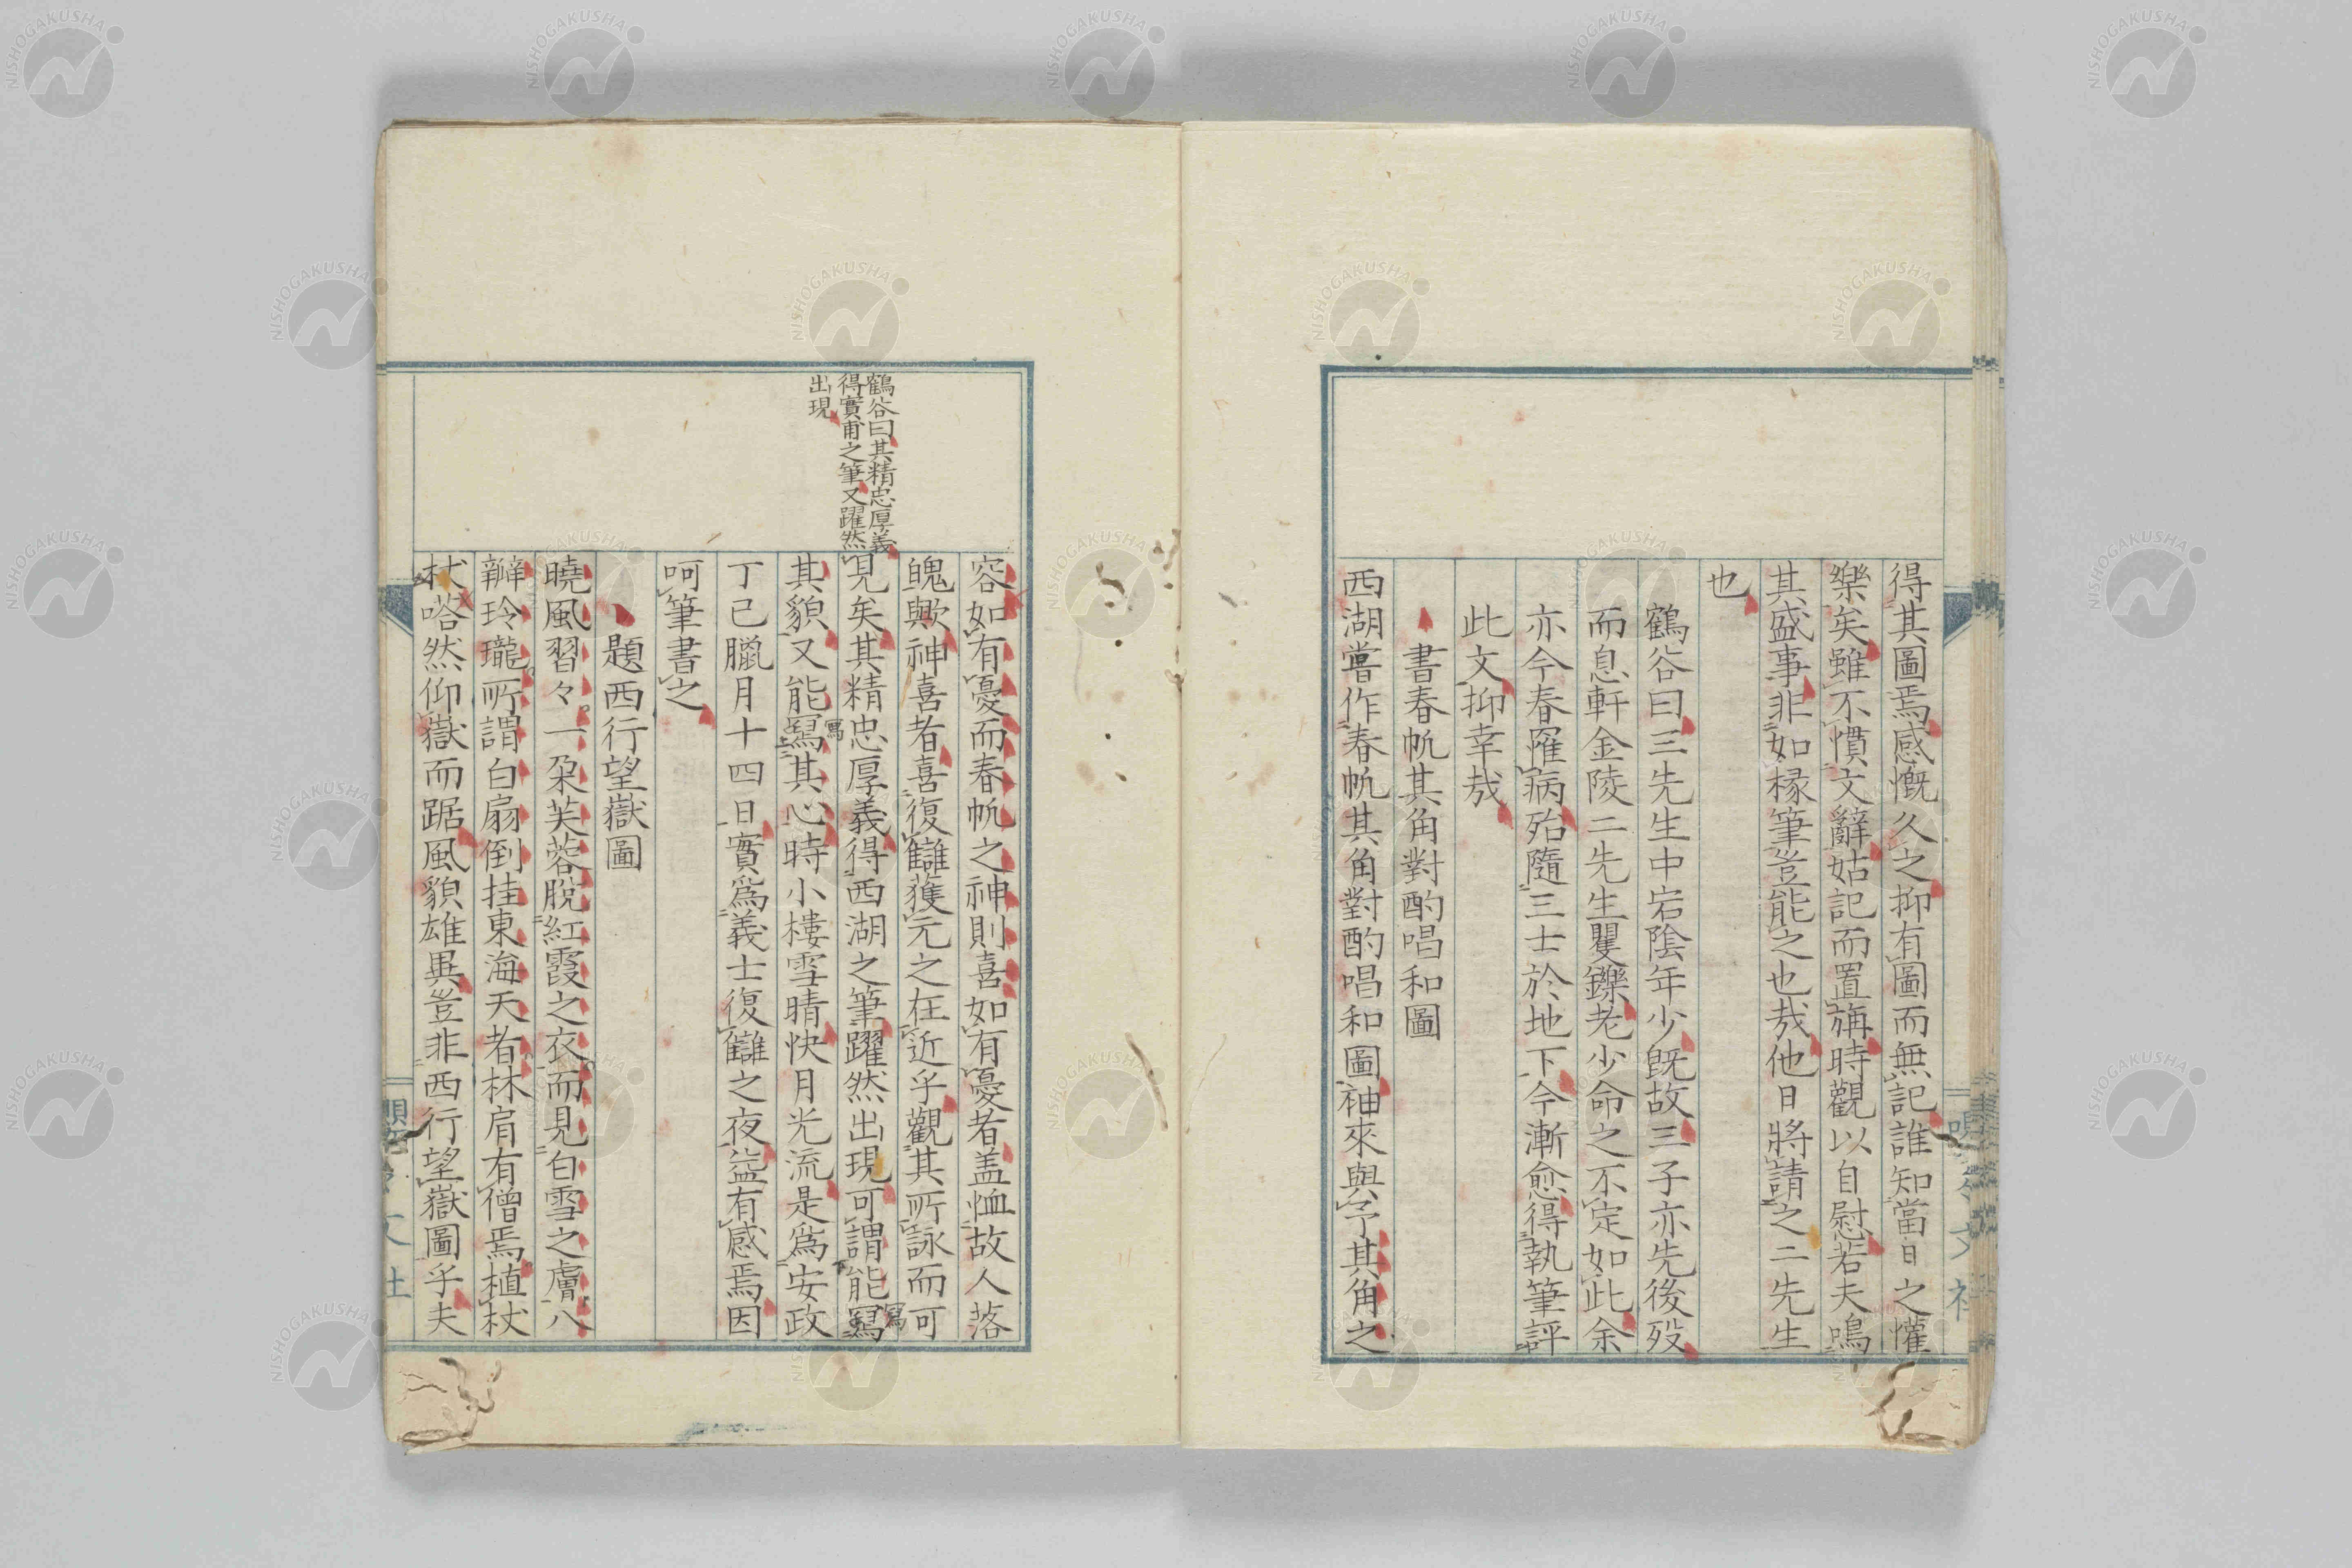 得其圖焉感慨久之抑有圖而無記誰知當日之懽
樂矣雖不慣文辭姑記而置旃時觀以自慰若夫鳴
其盛事非如椽筆豈能之也哉他日將請之二先生
也
鶴谷曰三先生中岩陰年少既故三子亦先後歿
而息軒金陵二先生矍鑠老少命之不定如此余
亦今春罹病殆隨三士於地下今漸愈得執筆評
此文抑幸哉
書春帆其角對酌唱和圖
西湖嘗作春帆其角對酌唱和圖袖來與予其角之
容如有憂而春帆之神則喜如有憂者盖恤故人落
魄歟神喜者喜復讎獲元之在近乎觀其所詠而可
鶴谷曰其精忠厚義
得實甫之筆又躍然
出現
見矣其精忠厚義得西湖之筆躍然出現可謂能寫
寫
其貌又能寫其心時小樓雪晴快月光流是爲安政
寫
丁巳臘月十四日實爲義士復讎之夜益有感焉因
呵筆書之
題西行望嶽圖
曉風習々一朶芙蓉脫紅霞之衣而見白雪之膚八
瓣玲瓏所謂白扇倒挂東海天者林肩有僧焉植杖
杖嗒然仰嶽而踞風貌雄異豈非西行望嶽圖乎夫
NISHOGAKUSHA